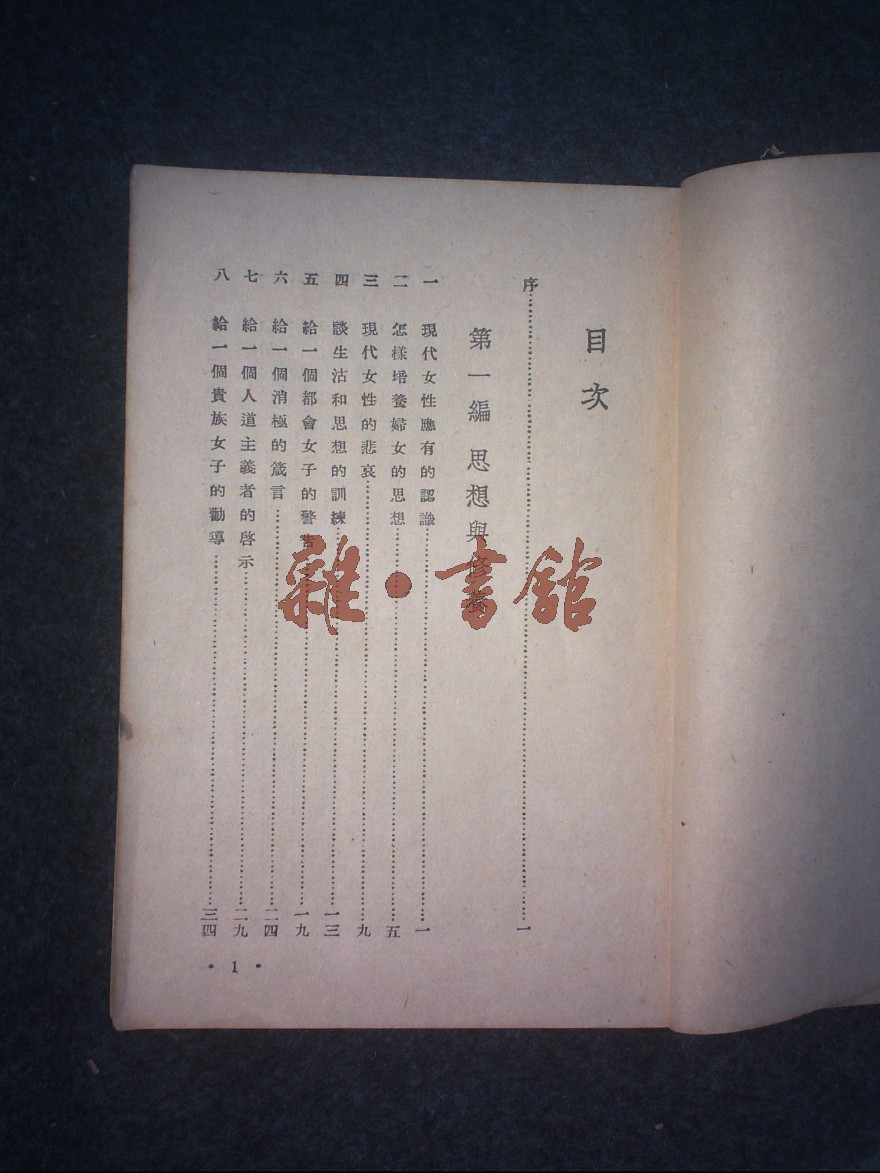 目次
序……一
第一編 思想與修養
一 現代女性應有的認識……一
二 怎樣培養婦女的思想……五
三 現代女性的悲哀……九
四 談生活和思想的訓練……一三
五 給一個都會女子的警告……一九
六 給一個消極的箴言……二四
七 給一個人道主義者的啓示……二九
八 給一個貴族女子的勸導……三四
• 1 •
雜•書館